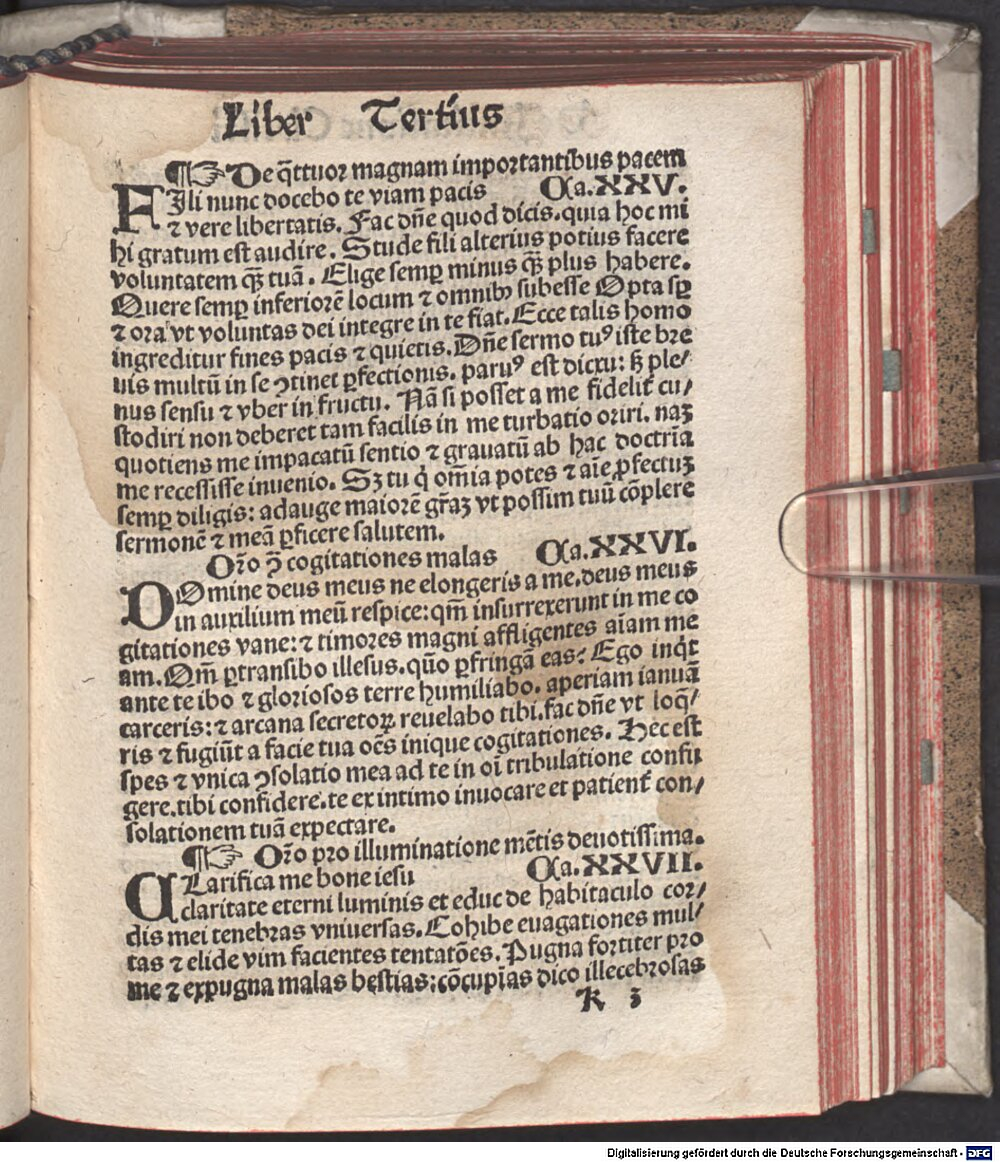 Liber Tertius
De q̃ttuor magnam importantibus pacem
FIli nunc docebo te viam pacis Ca.XXV.
⁊ vere libertatis. Fac dñe quod dicis.quia hoc mi
hi gratum est audire. Stude fili alterius potius facere
voluntatem qꝫ̃ tuã. Elige semꝑ minus qꝫ̃ plus habere.
Quere semꝑ inferiorẽ locum ⁊ omnibꝰ subesse Opta sꝑ
⁊ ora vt voluntas dei integre in te fiat. Ecce talis homo
ingreditur fines pacis ⁊ quietis. Dñe sermo tuꝰ iste bre
uis multũ in se ꝯtinet ꝑfectionis. paruꝰ est dictu: sꝫ ple/
nus sensu ⁊ vber in fructu. Nã si posset a me fidelit̃ cu/
stodiri non deberet tam facilis in me turbatio oriri. naꝫ
quotiens me impacatũ sentio ⁊ grauatũ ab hac doctrĩa
me recessisse inuenio. Sꝫ tu q̇ om̃ia potes ⁊ aĩe ꝓfectuꝫ
semꝑ diligis: adauge maiorẽ gr̃aꝫ vt possim tuũ cõplere
sermonẽ ⁊ meã ꝑficere salutem.
Or̃o ꝯ̃ cogitationes malas Ca.XXVI.
DOmine deus meus ne elongeris a me.deus meus
in auxilium meũ respice:qm̃ insurrexerunt in me co
gitationes vane:⁊ timores magni affligentes aĩam me
am. Qm̃ ꝑtransibo illesus.quõ ꝑfringã eas? Ego inq̇t
ante te ibo ⁊ gloriosos terre humiliabo. aperiam ianuã
carceris:⁊ arcana secretoꝝ reuelabo tibi.fac dñe vt loq̃/
ris ⁊ fugiũt a facie tua oẽs inique cogitationes. Hec est
spes ⁊ vnica ꝯsolatio mea ad te in oĩ tribulatione confu
gere.tibi confidere.te ex intimo inuocare et patient̃ con/
solationem tuã expectare.
Or̃o pro illuminatione mẽtis deuotissima.
CLarifica me bone iesu Ca.XXVII.
claritate eterni luminis et educ de habitaculo cor/
dis mei tenebras vniuersas. Cohibe euagationes mul/
tas ⁊ elide vim facientes tentatões. Pugna fortiter pro
me ⁊ expugna malas bestias:cõcupĩas dico illecebrosas
K 3
Digitalisierung gefördert durch die Deutsche Forschungsgemeinschaft - DFG